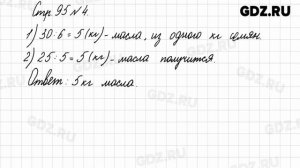 GDZ.RU
Стр. 95 № 4.
1) 30:6=5 (кг) - масла, из одного кг семян.
2) 25:5=5(кг) - масла получится
Ответ: 5 кг масла.